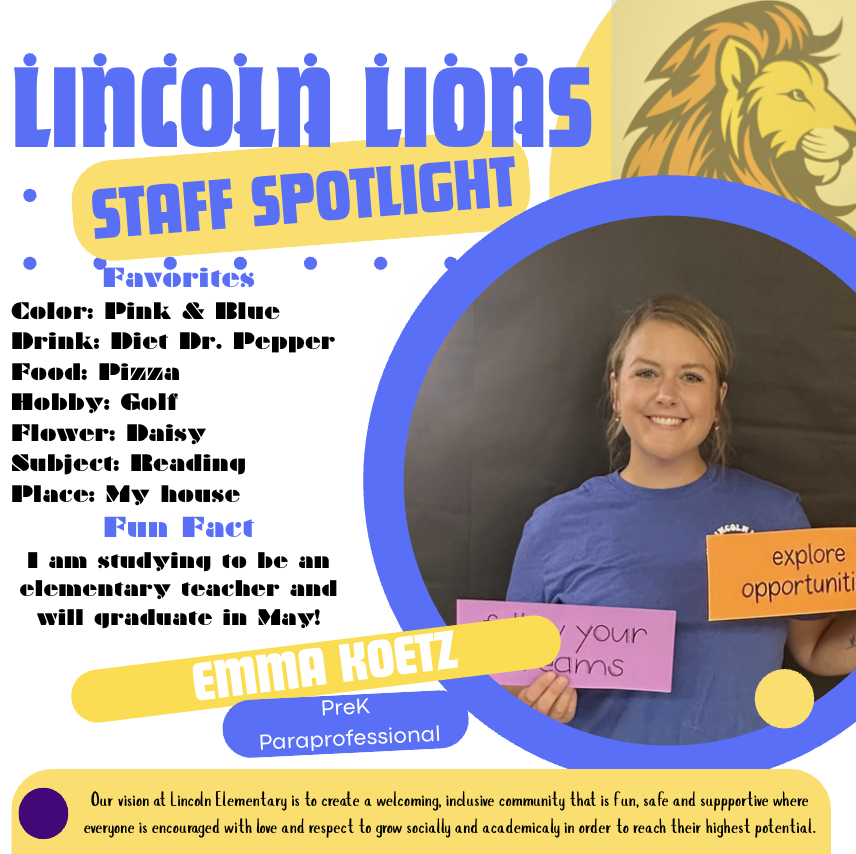 LINCOLN LIONS
STAFF SPOTLIGHT
Favorites
Color: Pink & Blue
Drink: Diet Dr. Pepper
Food: Pizza
Hobby: Golf
Flower: Daisy
Subject: Reading
Place: My house
Fun Fact
I am studying to be an
elementary teacher and
will graduate in May!
explore
your
EMMA KOETZ
PreK
Paraprofessional
Our vision at Lincoln Elementary is to create a welcoming, inclusive community that is fun, safe and suppportive where
everyone is encouraged with love and respect to grow socially and academicaly in order to reach their highest potential.